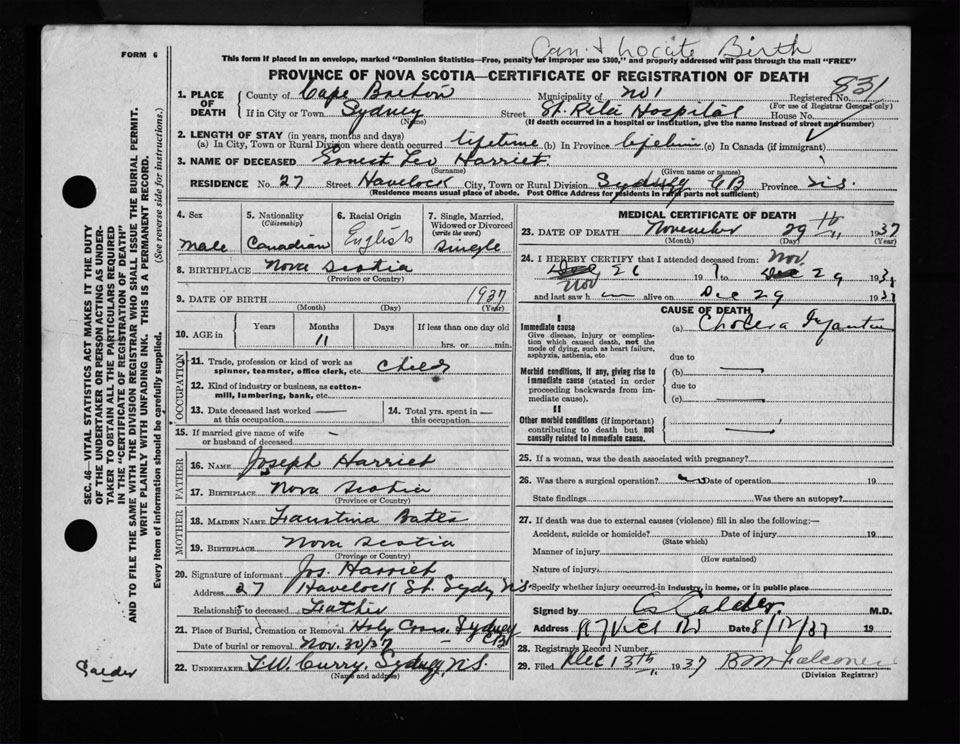 Can't Locate Birth
FORM 6
This form if placed in an envelope, marked "Dominion Statistics—Free, penalty for improper use $300," and properly addressed will pass through the mail "FREE"
PROVINCE OF NOVA SCOTIA—CERTIFICATE OF REGISTRATION OF DEATH
1. PLACE OF DEATH County of Cape Breton Municipality of No 1 Registered No. 831
(For use of Registrar General only)
If in City or Town Sydney (Name) Street St. Rita Hospital House No.
(If death occurred in a hospital or institution, give the name instead of street and number)
2. LENGTH OF STAY (in years, months and days)
(a) In City, Town or Rural Division where death occurred lifetime (b) In Province lifetime (c) In Canada (if immigrant)
3. NAME OF DECEASED Ernest Leo Harriet
(Surname) (Given name or names)
RESIDENCE No. 27 Street Havelock City, Town or Rural Division Sydney CB Province N.S.
(Residence means usual place of abode. Post Office Address for residents in rural parts not sufficient)
4. Sex Male
5. Nationality (Citizenship) Canadian
6. Racial Origin English
7. Single, Married, Widowed or Divorced (write the word) Single
8. BIRTHPLACE Nova Scotia
(Province or Country)
9. DATE OF BIRTH 1937
(Month) (Day) (Year)
10. AGE in Years Months 11 Days If less than one day old
hrs. or min.
OCCUPATION
11. Trade, profession or kind of work as spinner, teamster, office clerk, etc. Child
12. Kind of industry or business, as cotton-mill, lumbering, bank, etc.
13. Date deceased last worked at this occupation —
14. Total yrs. spent in this occupation —
15. If married give name of wife or husband of deceased —
FATHER
16. NAME Joseph Harriet
17. BIRTHPLACE Nova Scotia
(Province or Country)
MOTHER
18. MAIDEN NAME Faustina Bates
19. BIRTHPLACE Nova Scotia
(Province or Country)
20. Signature of informant Jos. Harriet
Address 27 Havelock St. Sydney N.S.
Relationship to deceased Father
21. Place of Burial, Cremation or Removal Holy Cross Sydney CB
Date of burial or removal Nov. 30/37
22. UNDERTAKER T.W. Curry, Sydney N.S.
(Name and address)
MEDICAL CERTIFICATE OF DEATH
23. DATE OF DEATH November 29th 1937
(Month) (Day) (Year)
24. I HEREBY CERTIFY that I attended deceased from: Nov.
Nov 26 193 to 29 193
and last saw h alive on Dec 29 193
CAUSE OF DEATH
I
Immediate cause (a) Cholera Infantum
Give disease, injury or complication which caused death, not the mode of dying, such as heart failure, asphyxia, asthenia, etc.
due to
Morbid conditions, if any, giving rise to immediate cause (stated in order proceeding backwards from immediate cause). (b) —
due to
(c) —
II
Other morbid conditions (if important) contributing to death but not causally related to immediate cause. —
25. If a woman, was the death associated with pregnancy?
26. Was there a surgical operation? no Date of operation 19
State findings Was there an autopsy?
27. If death was due to external causes (violence) fill in also the following:—
Accident, suicide or homicide? Date of injury 19
(State which)
Manner of injury
(How sustained)
Nature of injury
Specify whether injury occurred in industry, in home, or in public place
Signed by Calder M.D.
Address Date 8/12/37 19
28. Registrar's Record Number
29. Filed Dec 13th 1937 Falconer
(Division Registrar)
SEC. 46—VITAL STATISTICS ACT MAKES IT THE DUTY
OF THE UNDERTAKER OR PERSON ACTING AS UNDER-
TAKER TO OBTAIN ALL THE PARTICULARS REQUIRED
IN THE "CERTIFICATE OF REGISTRATION OF DEATH"
AND TO FILE THE SAME WITH THE DIVISION REGISTRAR WHO SHALL ISSUE THE BURIAL PERMIT.
WRITE PLAINLY WITH UNFADING INK. THIS IS A PERMANENT RECORD.
Every item of information should be carefully supplied. (See reverse side for instructions.)
Calder